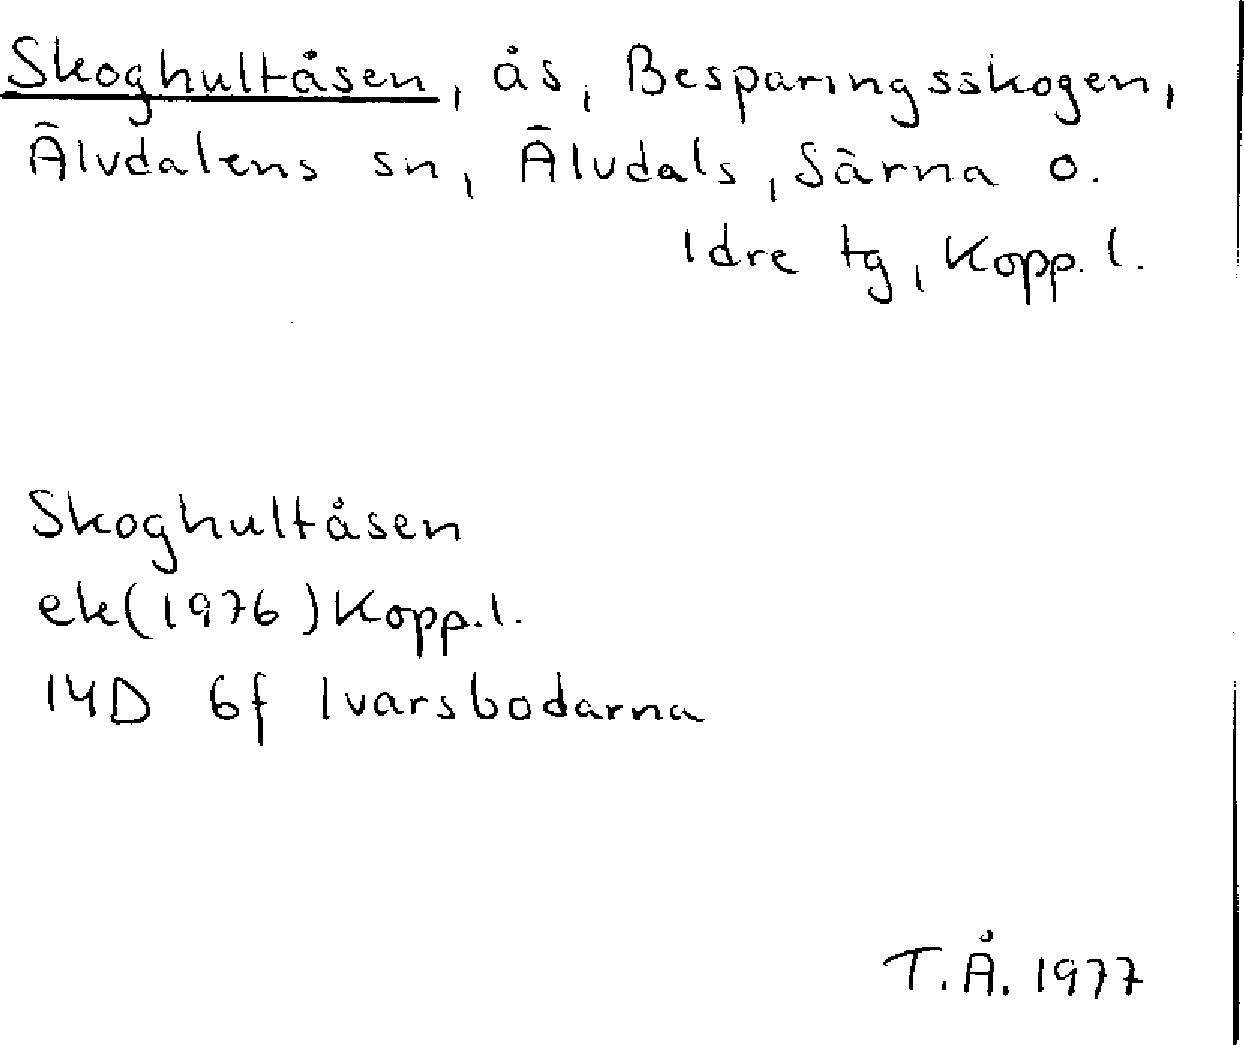 Skoghultåsen, ås, Besparingsskogen,
Älvdalens sn, Älvdals, Särna o.
Idre tg, Kopp. l.
Skoghultåsen
ek(1976) Kopp.l.
14D 6f Ivarsbodarna
T.Å. 1977